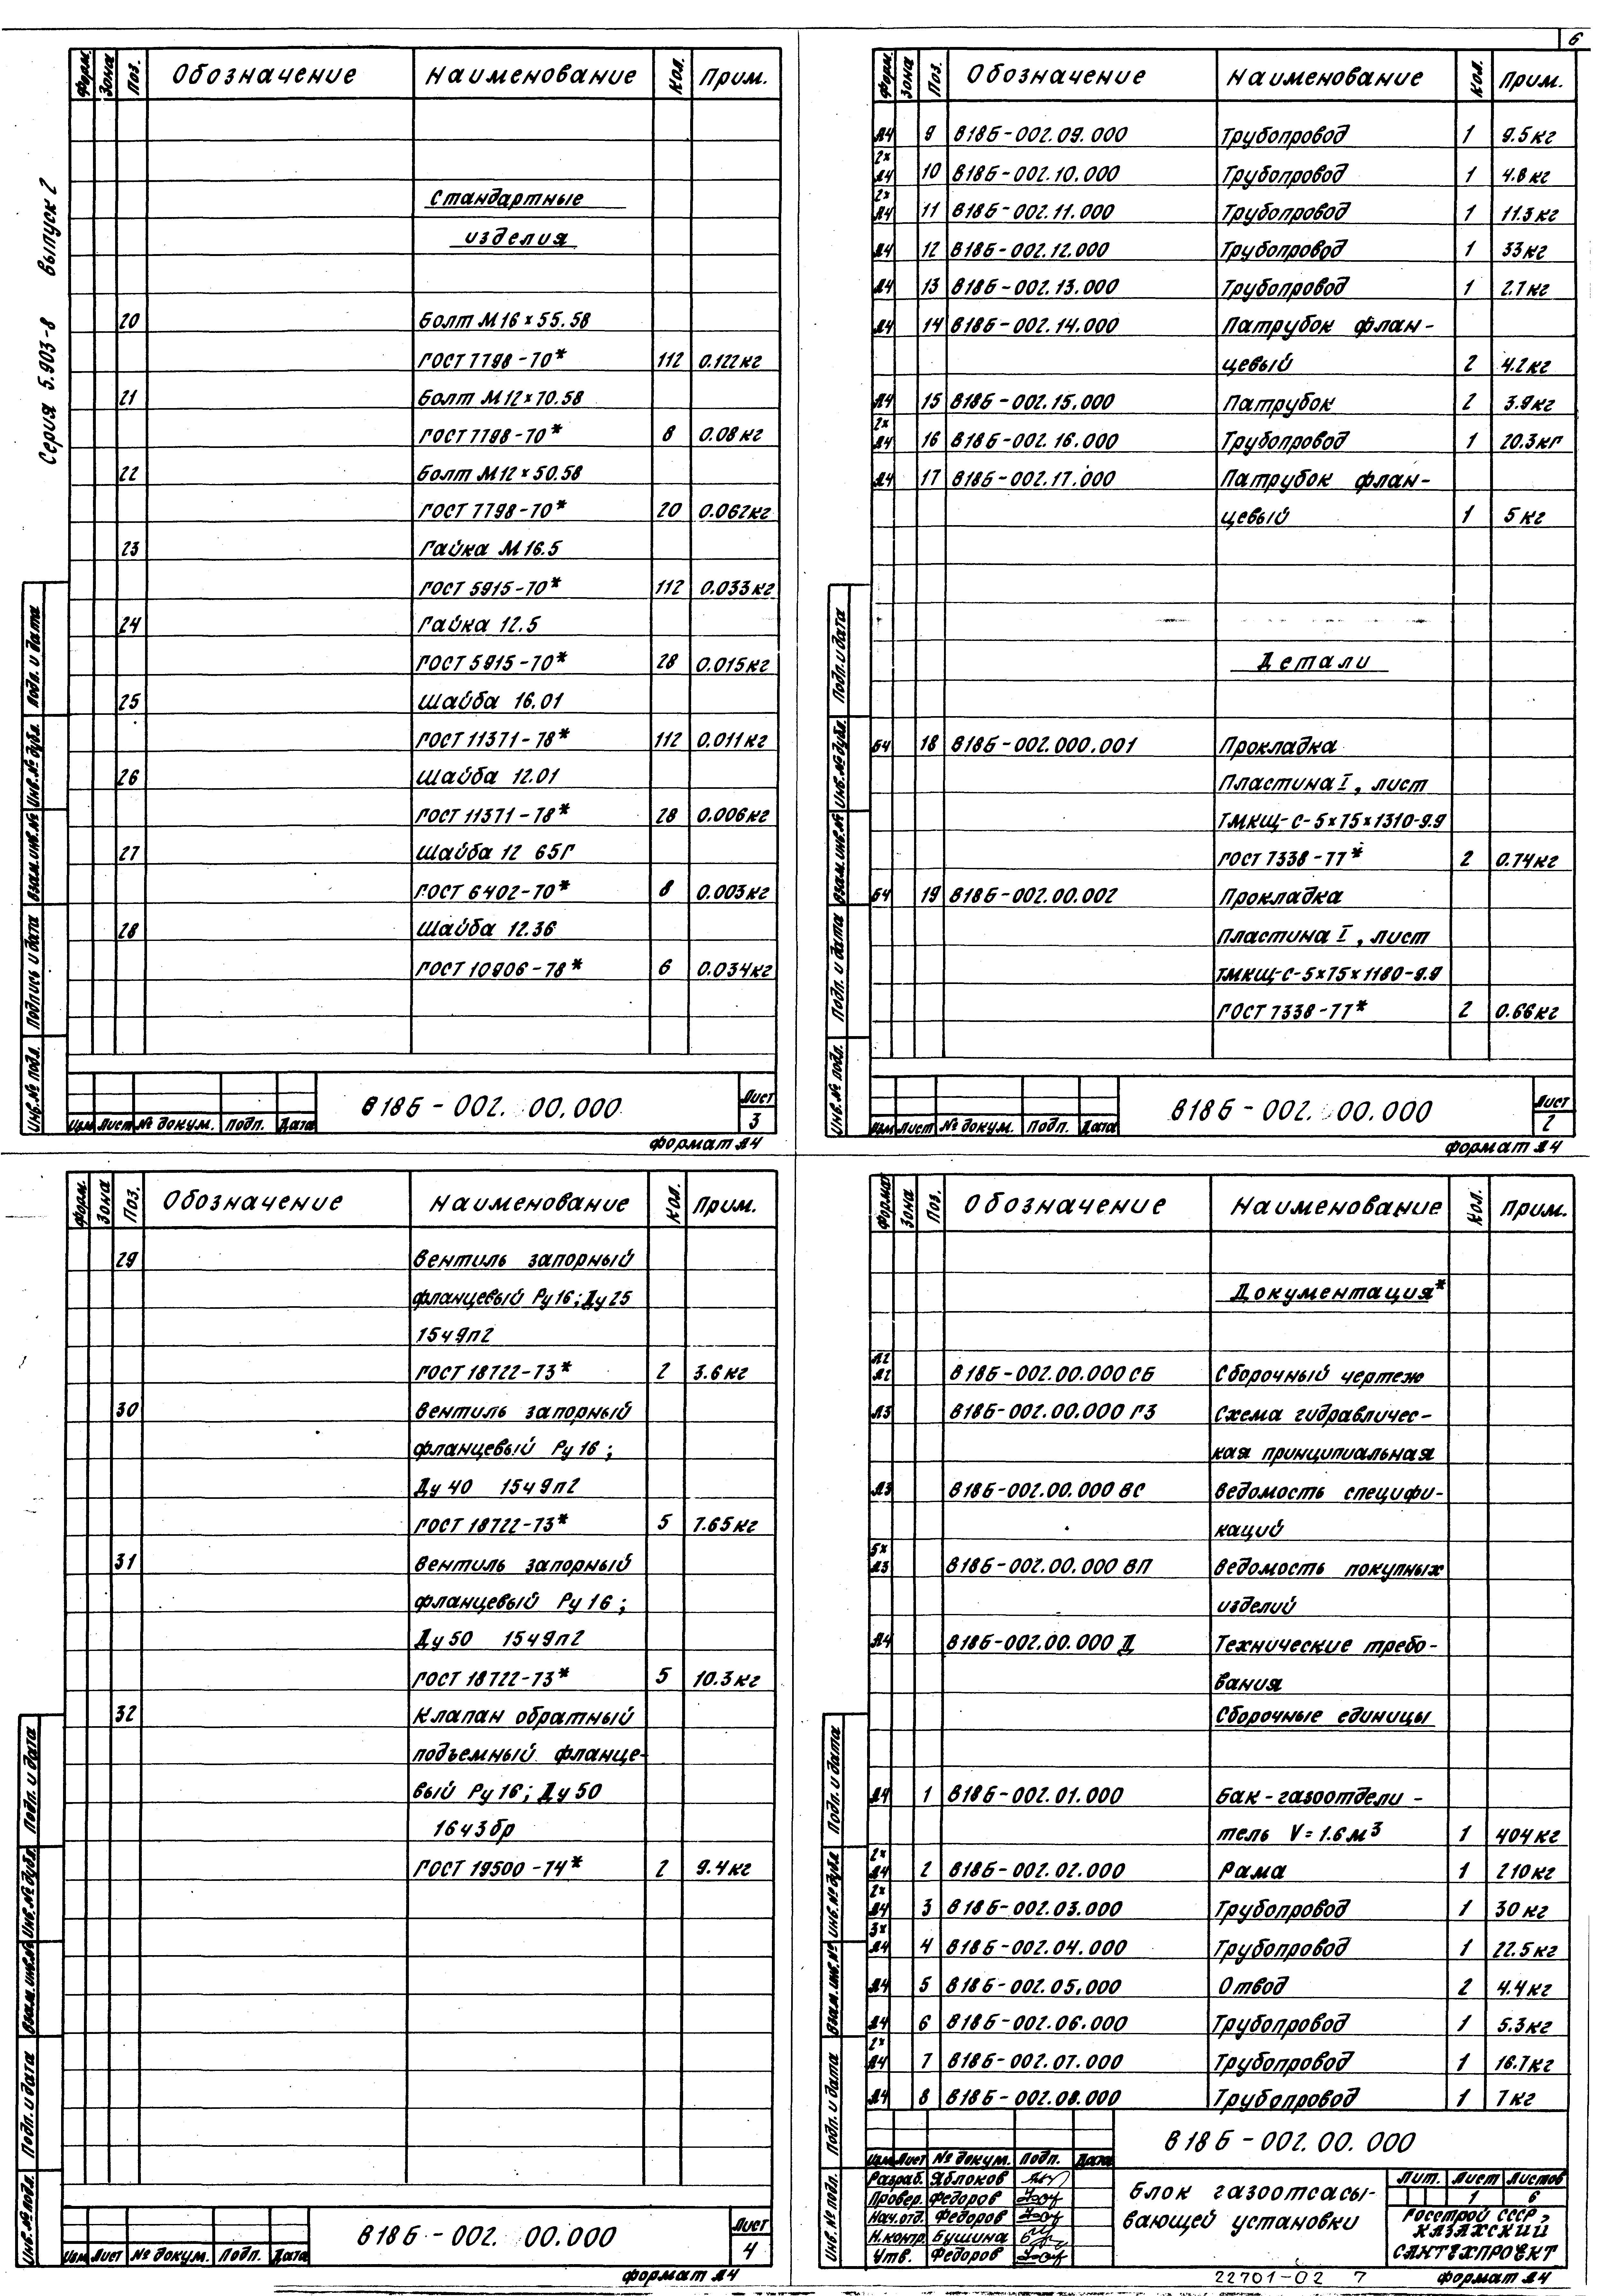 6
Серия 5.903-8 выпуск 2
Форм. Зона Поз. Обозначение Наименование Кол. Прим.
Стандартные
изделия
20 Болт М16×55.58
ГОСТ 7798-70* 112 0.122кг
21 Болт М12×70.58
ГОСТ 7798-70* 8 0.08кг
22 Болт М12×50.58
ГОСТ 7798-70* 20 0.062кг
23 Гайка М16.5
ГОСТ 5915-70* 112 0.033кг
24 Гайка 12.5
ГОСТ 5915-70* 28 0.015кг
25 Шайба 16.01
ГОСТ 11371-78* 112 0.011кг
26 Шайба 12.01
ГОСТ 11371-78* 28 0.006кг
27 Шайба 12 65Г
ГОСТ 6402-70* 8 0.003кг
28 Шайба 12.36
ГОСТ 10906-78* 6 0.034кг
Инв.№ подл. Подпись и дата Взам.инв.№ Инв.№ дубл. Подп. и дата
Изм Лист № докум. Подп. Дата
В18Б-002. 00.000
Лист
3
Формат А4
Форм. Зона Поз. Обозначение Наименование Кол. Прим.
А4 9 В18Б-002.09.000 Трубопровод 1 9.5кг
2× А4 10 В18Б-002.10.000 Трубопровод 1 4.8кг
2× А4 11 В18Б-002.11.000 Трубопровод 1 11.3кг
А4 12 В18Б-002.12.000 Трубопровод 1 33кг
А4 13 В18Б-002.13.000 Трубопровод 1 2.7кг
А4 14 В18Б-002.14.000 Патрубок флан-
цевый 2 4.2кг
А4 15 В18Б-002.15.000 Патрубок 2 3.9кг
2× А4 16 В18Б-002.16.000 Трубопровод 1 20.3кг
А4 17 В18Б-002.17.000 Патрубок флан-
цевый 1 5кг
Детали
Б4 18 В18Б-002.000.001 Прокладка
Пластина I, лист
ТМКЩ-С-5×75×1310-9.9
ГОСТ 7338-77* 2 0.74кг
Б4 19 В18Б-002.00.002 Прокладка
Пластина I, лист
ТМКЩ-С-5×75×1180-9.9
ГОСТ 7338-77* 2 0.66кг
Инв.№ подл. Подп. и дата Взам.инв.№ Инв.№ дубл. Подп. и дата
Изм Лист № докум. Подп. Дата
В18Б-002. 00.000
Лист
2
Формат А4
Форм. Зона Поз. Обозначение Наименование Кол. Прим.
29 Вентиль запорный
фланцевый Ру16; Ду25
15ч9п2
ГОСТ 18722-73* 2 3.6кг
30 Вентиль запорный
фланцевый Ру16;
Ду40 15ч9п2
ГОСТ 18722-73* 5 7.65кг
31 Вентиль запорный
фланцевый Ру16;
Ду50 15ч9п2
ГОСТ 18722-73* 5 10.3кг
32 Клапан обратный
подъемный фланце-
вый Ру16; Ду50
16ч3бр
ГОСТ 19500-74* 2 9.4кг
Инв.№ подл. Подп. и дата Взам.инв.№ Инв.№ дубл. Подп. и дата
Изм Лист № докум. Подп. Дата
В18Б-002. 00.000
Лист
4
Формат А4
Формат Зона Поз. Обозначение Наименование Кол. Прим.
Документация*
А2 А2 В18Б-002.00.000 СБ Сборочный чертеж
А3 В18Б-002.00.000 Г3 Схема гидравличес-
кая принципиальная
А3 В18Б-002.00.000 ВС Ведомость специфи-
каций
5× А3 В18Б-002.00.000 ВП Ведомость покупных
изделий
А4 В18Б-002.00.000 Д Технические требо-
вания
Сборочные единицы
А4 1 В18Б-002.01.000 Бак-газоотдели-
тель V=1.6м3 1 404кг
2× А4 2 В18Б-002.02.000 Рама 1 210кг
2× А4 3 В18Б-002.03.000 Трубопровод 1 30кг
3× А4 4 В18Б-002.04.000 Трубопровод 1 22.5кг
А4 5 В18Б-002.05.000 Отвод 2 4.4кг
А4 6 В18Б-002.06.000 Трубопровод 1 5.3кг
2× А4 7 В18Б-002.07.000 Трубопровод 1 16.7кг
А4 8 В18Б-002.08.000 Трубопровод 1 7кг
Инв.№ подл. Подп. и дата Взам.инв.№ Инв.№ дубл. Подп. и дата
В18Б-002.00.000
Изм Лист № докум. Подп. Дата
Разраб. Яблоков
Провер. Федоров
Нач.отд. Федоров
Н.контр. Бушина
Утв. Федоров
Блок газоотсасы-
вающей установки
Лит. Лист Листов
1 6
Госстрой СССР,
КАЗАХСКИЙ
САНТЕХПРОЕКТ
22701-02 7
Формат А4